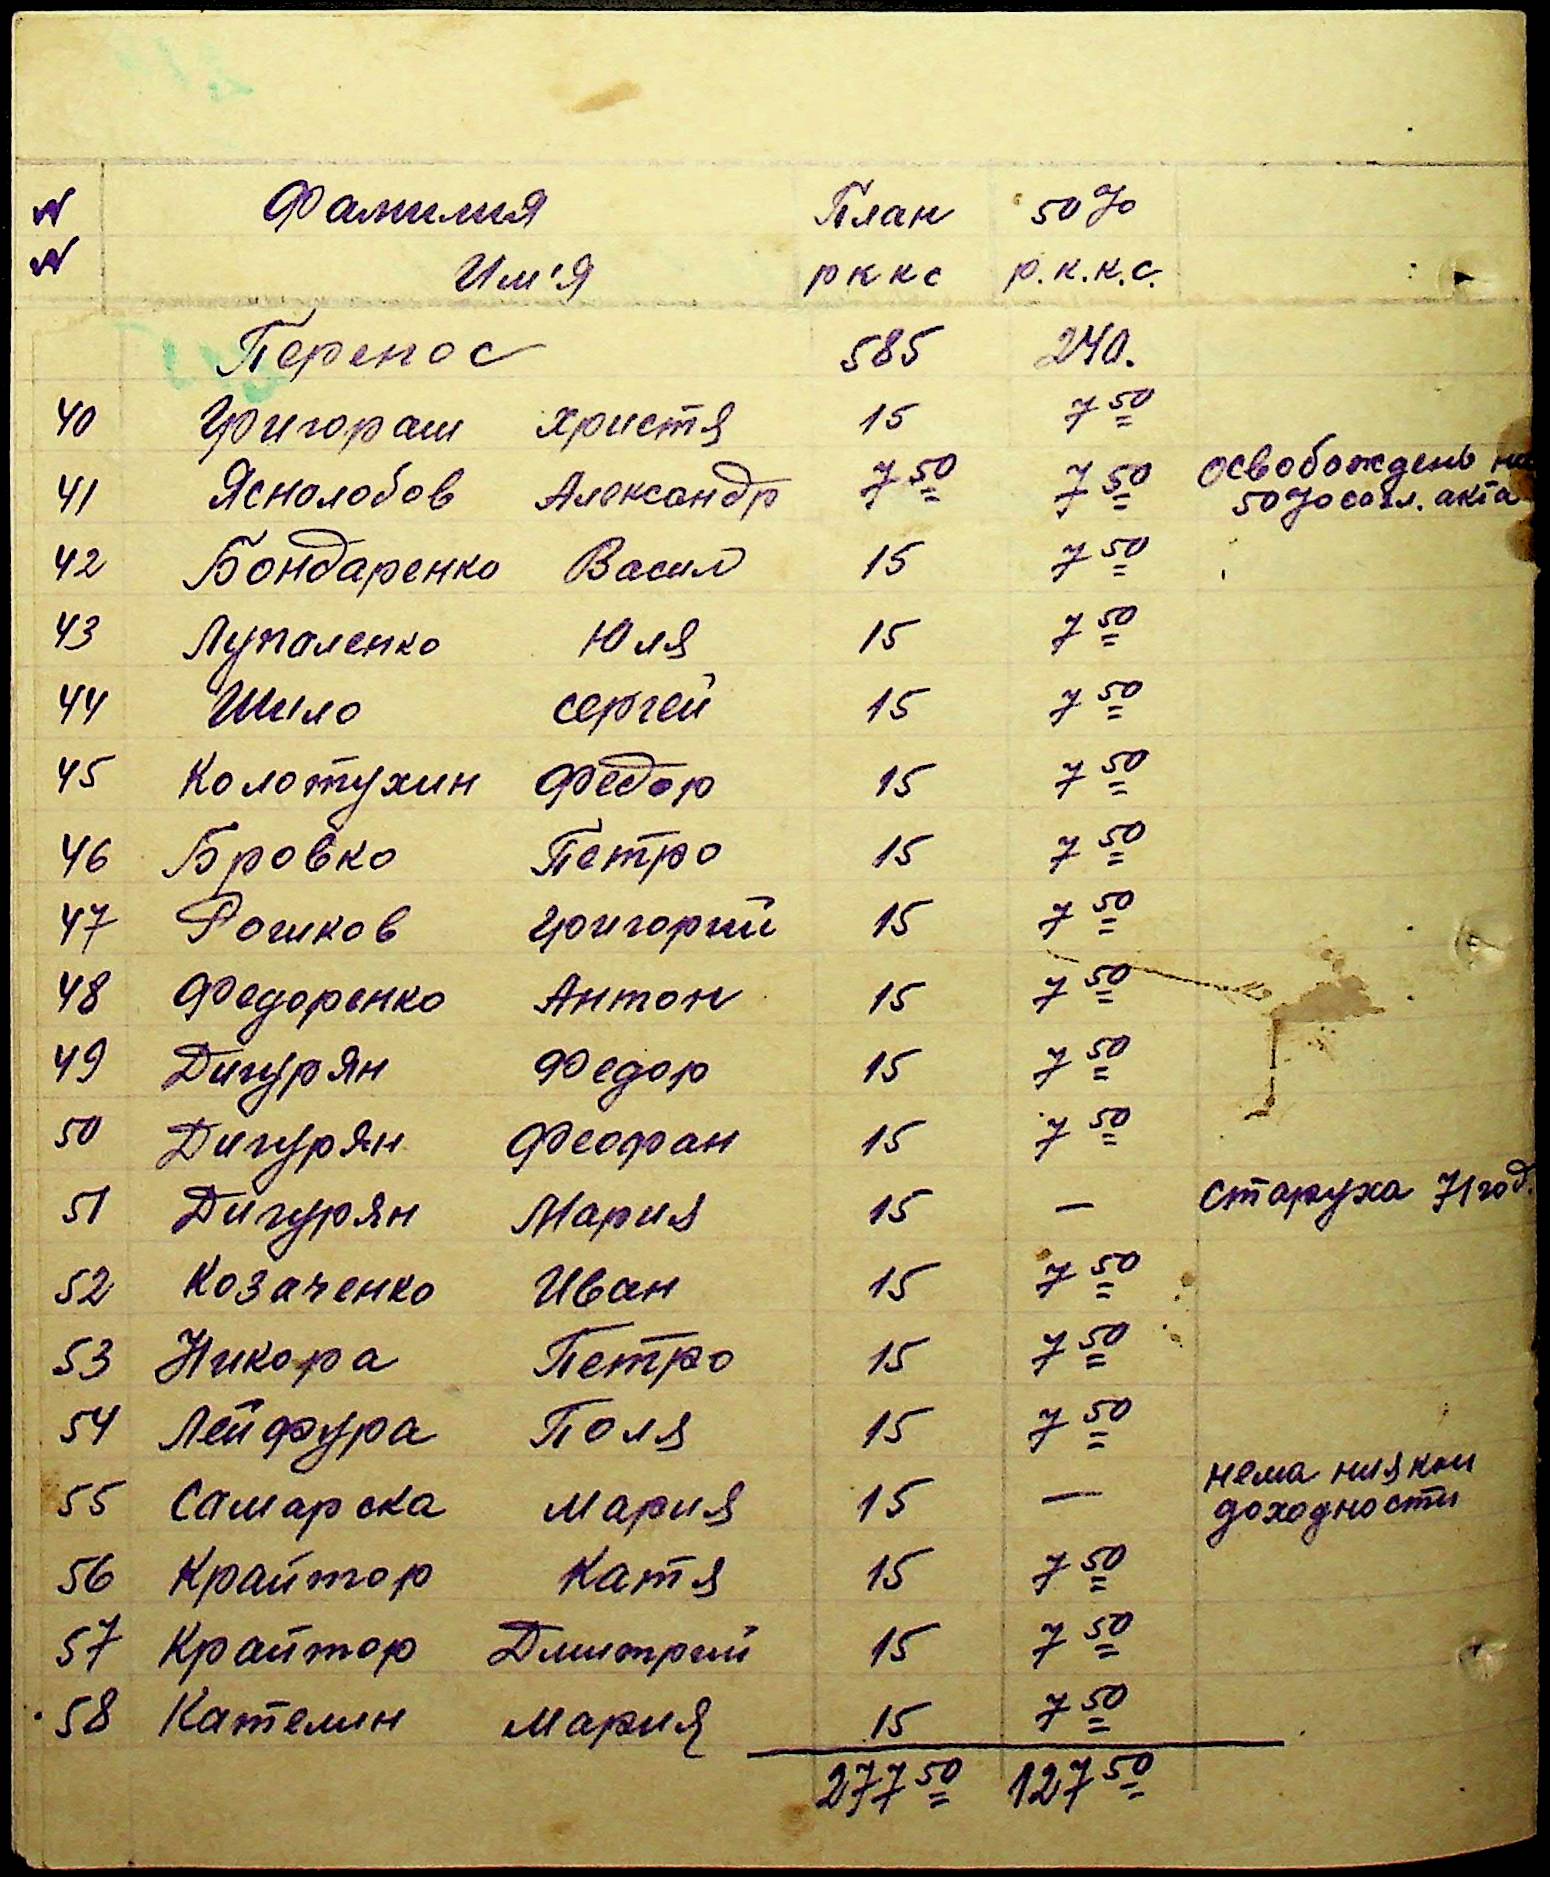 N Фамилия План 50%
N Им'я р к к с р.к.к.с.
Перенос 585 240.
40 Григораш Христя 15 7 50
41 Яснолобов Александр 7 50 7 50 освобождень на
50% согл. акта
42 Бондаренко Васил 15 7 50
43 Лупаленко Юля 15 7 50
44 Шило Сергей 15 7 50
45 Колотухин Федор 15 7 50
46 Бровко Петро 15 7 50
47 Рошков Григорий 15 7 50
48 Федоренко Антон 15 7 50
49 Дигурян Федор 15 7 50
50 Дигурян Феофан 15 7 50
51 Дигурян Мария 15 — старуха 71 год.
52 Козаченко Иван 15 7 50
53 Никора Петро 15 7 50
54 Лейфура Поля 15 7 50
55 Самарска Мария 15 — нема ниякои
доходности
56 Крайтор Катя 15 7 50
57 Крайтор Дмитрий 15 7 50
58 Кателин Мария 15 7 50
277 50 127 50